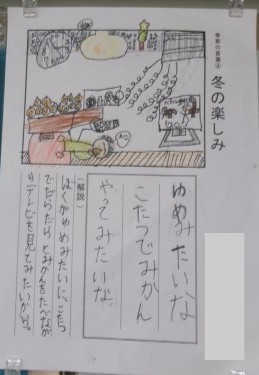 季節の言葉④
冬の楽しみ
ゆめみたいな
こたつでみかん
やってみたいな
(解説)
ぼくがゆめみたいに、こたつ
でだらだらとみかんをたべなが
らテレビを見てみたいから。